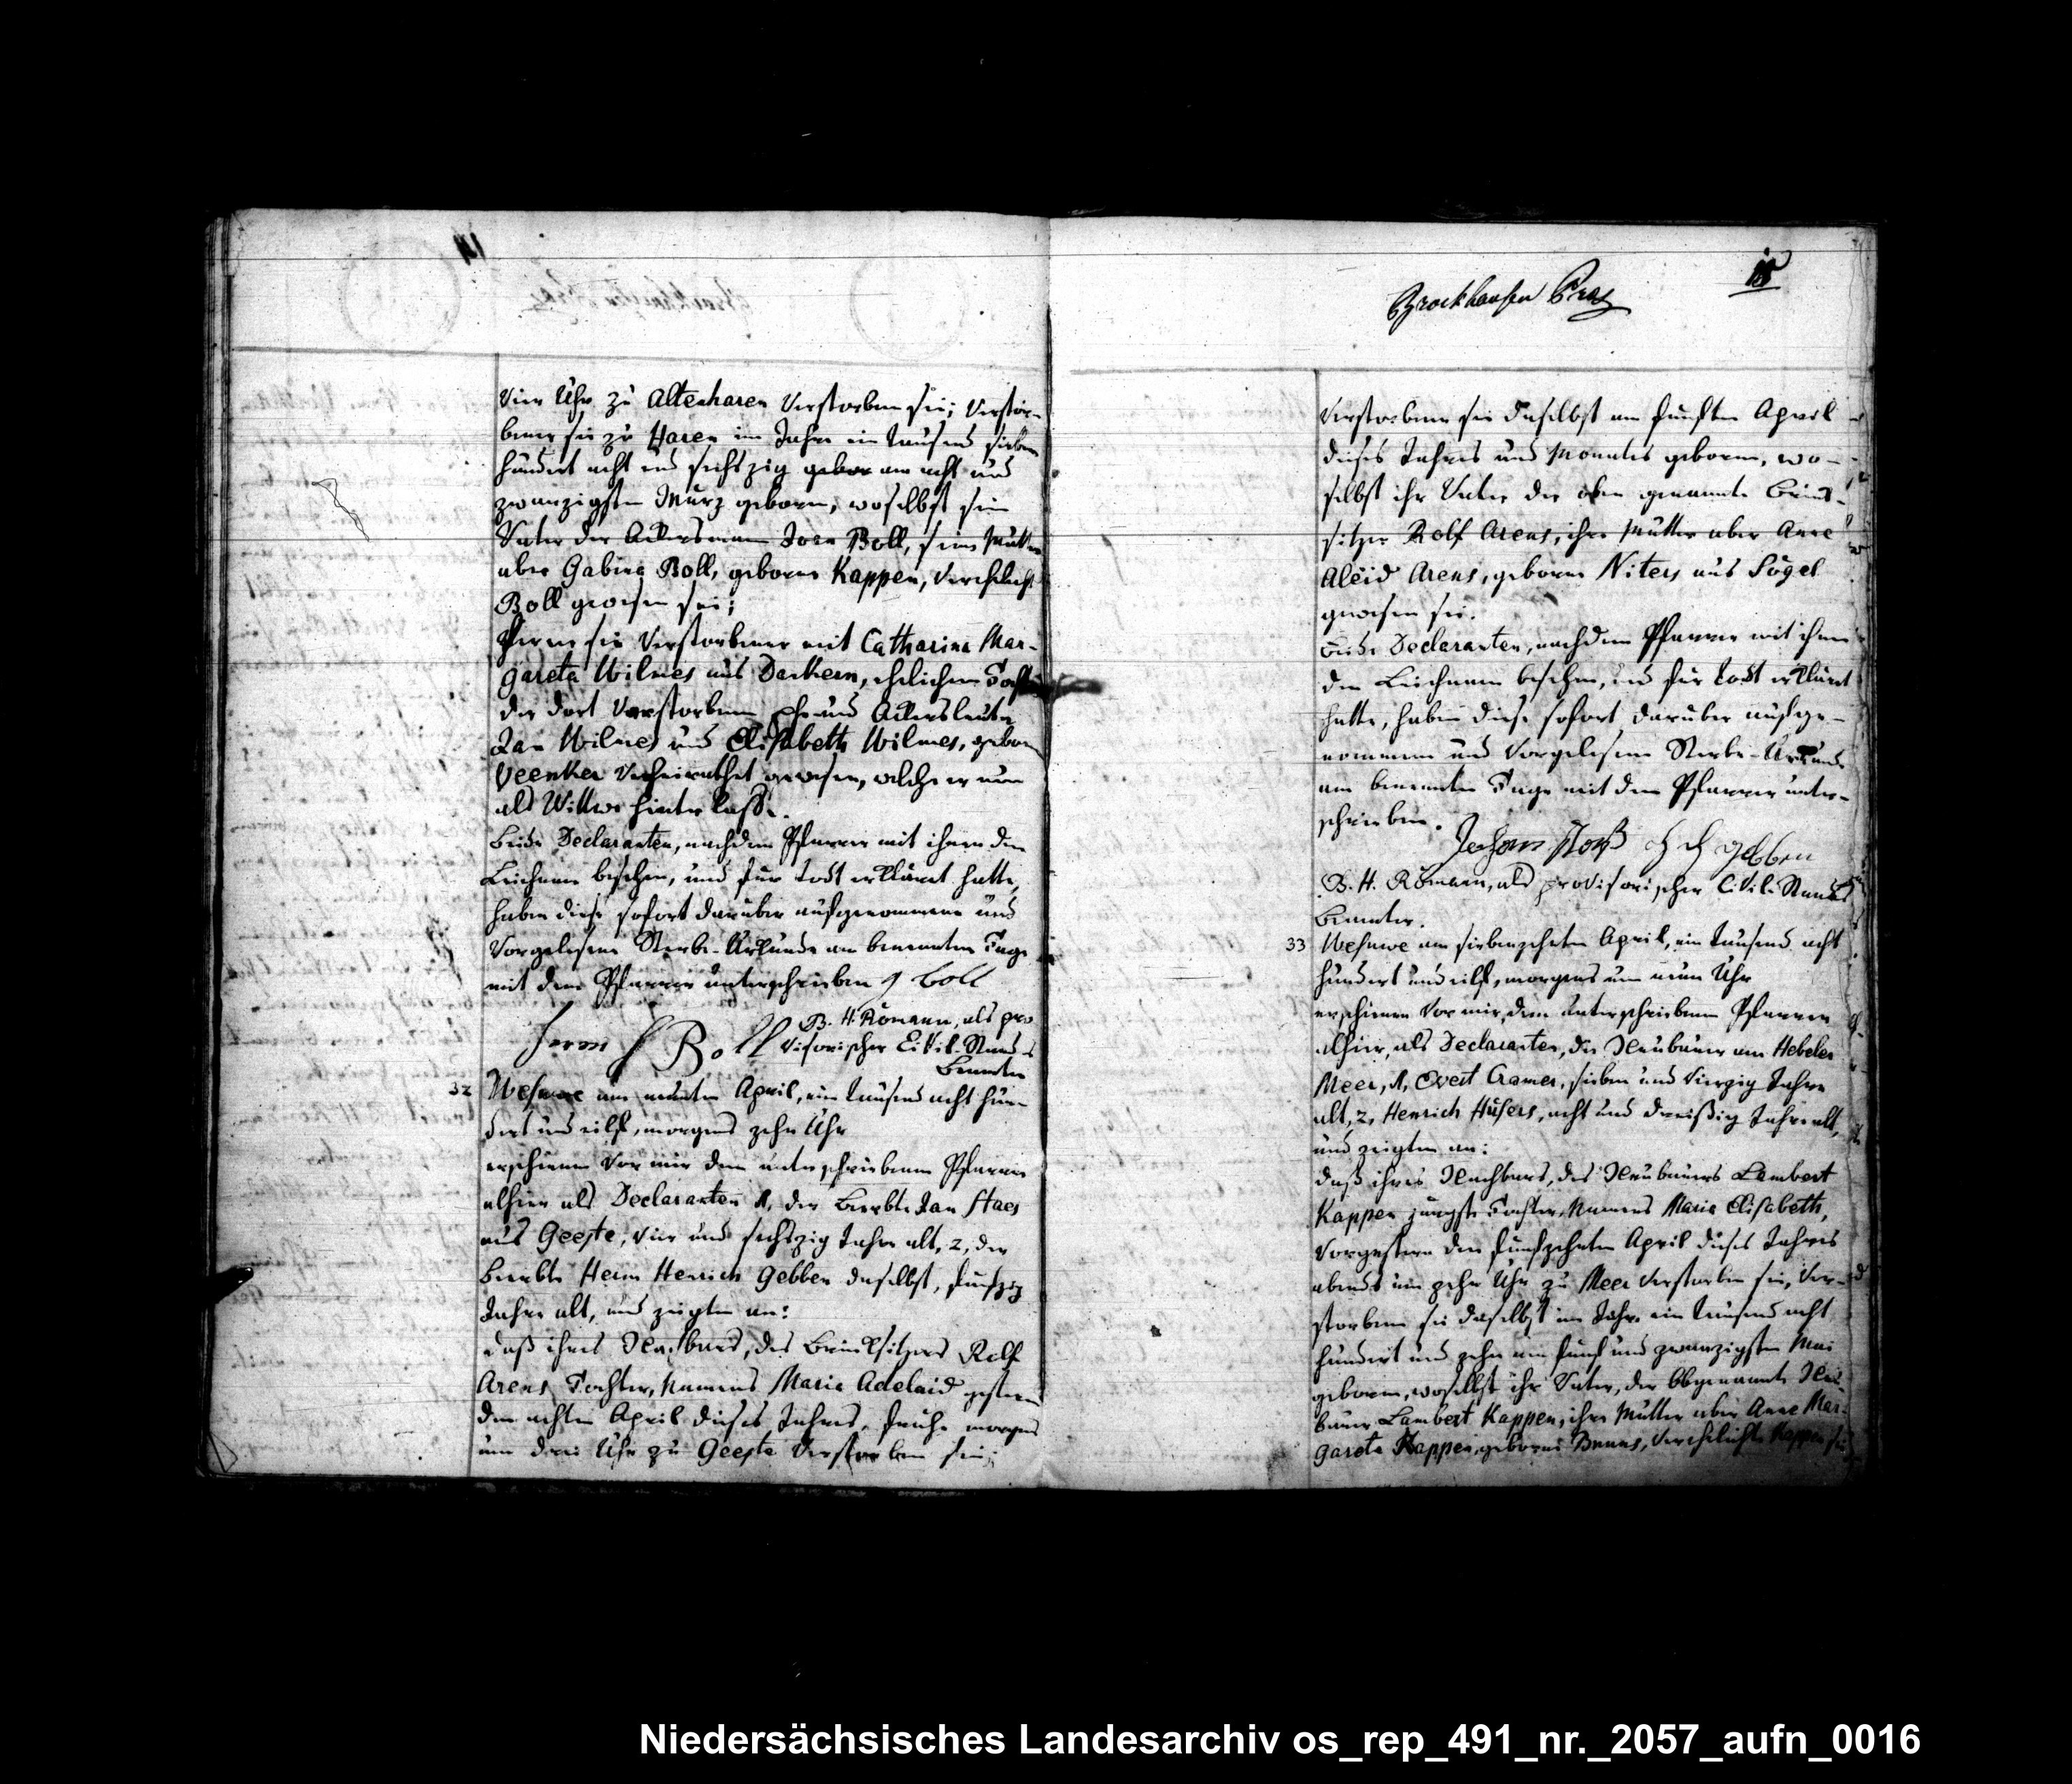 14
Vier Uhr zu Altenharen Verstorben sei; Verstor-
bener sei zu Haren im Jahre ein tausend sieben
hundert acht und sechszig gebor am acht und
zwanzigsten März geboren, woselbst sein
Vater der Ackersmann Joan Boll, seine Mutter
aber Gabina Boll, geborne Kappen, Verehelichte
Boll gewesen sei;
Ferner sei Verstorbener mit Catharina Mar-
gareta Wilmes aus Dankern, ehelichen Tochter
der dort Verstorbenen Ehe und Ackersleute
Jan Wilmes und Elisabeth Wilmes, geborne
Veenker Verheirathet gewesen, welche er nun
als Wittwe hinterlasse.
Beide Declaranten, nachdem Pfarrer mit ihnen den
Leichnam besehen, und für todt erklärt hatte,
haben diese sofort darüber aufgenommene und
Vorgelesene Sterbe-Urkunde am benannten Tage
mit dem Pfarrer unterschrieben g Boll
Herm H Boll
B. H. Römann, als pro
visorischer Civil-Stands
Beamter
32
Wesuwe am neunten April, ein tausend acht hun-
dert und eilf, morgens zehn Uhr
erschienen Vor mir dem unterschriebenen Pfarrer
alhier als Declaranten 1, der Beerbte Jan Staes
aus Geeste, Vier und sechszig Jahre alt, 2, der
Beerbte Herm Henrich Gebben daselbst, funfzig
Jahre alt, und zeigten an:
daß ihres Nachbars, des Brinksitzers Rolf
Arens Tochter, Namens Maria Adelaid gestern
den achten April dieses Jahres, frühe morgens
um drei Uhr zu Geeste Verstorben sei;
Brockhausen Graz
15
Verstorbene sei daselbst am funften April
dieses Jahres und Monates geboren, wo-
selbst ihr Vater der oben genannte Brink-
sitzer Rolf Arens, ihre Mutter aber Anne
Aleid Arens, geborne Niters aus Sögel
gewesen sei.
Beide Declaranten, nachdem Pfarrer mit ihnen
den Leichnam besehen, und für todt erklärt
hatte, haben diese sofort darüber aufge-
nommene und Vorgelesene Sterbe-Urkunde
am benannten Tage mit dem Pfarrer unter-
schrieben.
Johan Stoß H H gebben
B. H. Römann, als provisorischer Civil-Stands
Beamter.
33
Wesuwe am siebenzehnten April, ein tausend acht
hundert und eilf, morgens um neun Uhr
erschienen Vor mir, dem unterschriebenen Pfarrer
alhier, als Declaranten, der Neubauer am Hebeler
Meer, 1, Evert Cramer, sieben und Vierzig Jahre
alt, 2, Henrich Hüsers, acht und dreißig Jahre alt,
und zeigten an:
daß ihres Nachbars, des Neubauers Lambert
Kappen jüngste Tochter, Namens Maria Elisabeth,
Vorgestern den funfzehnten April dieses Jahres
abends um zehn Uhr zu Meer Verstorben sei, Ver-
storbene sei daselbst im Jahre ein tausend acht
hundert und zehn am funf und zwanzigsten Mai
geboren, woselbst ihr Vater, der Obgenannte Neu-
bauer Lambert Kappen, ihre Mutter aber Anne Mar-
gareta Kappen, geborne Bruns, Verehelichte Kappen sei
Niedersächsisches Landesarchiv os_rep_491_nr._2057_aufn_0016